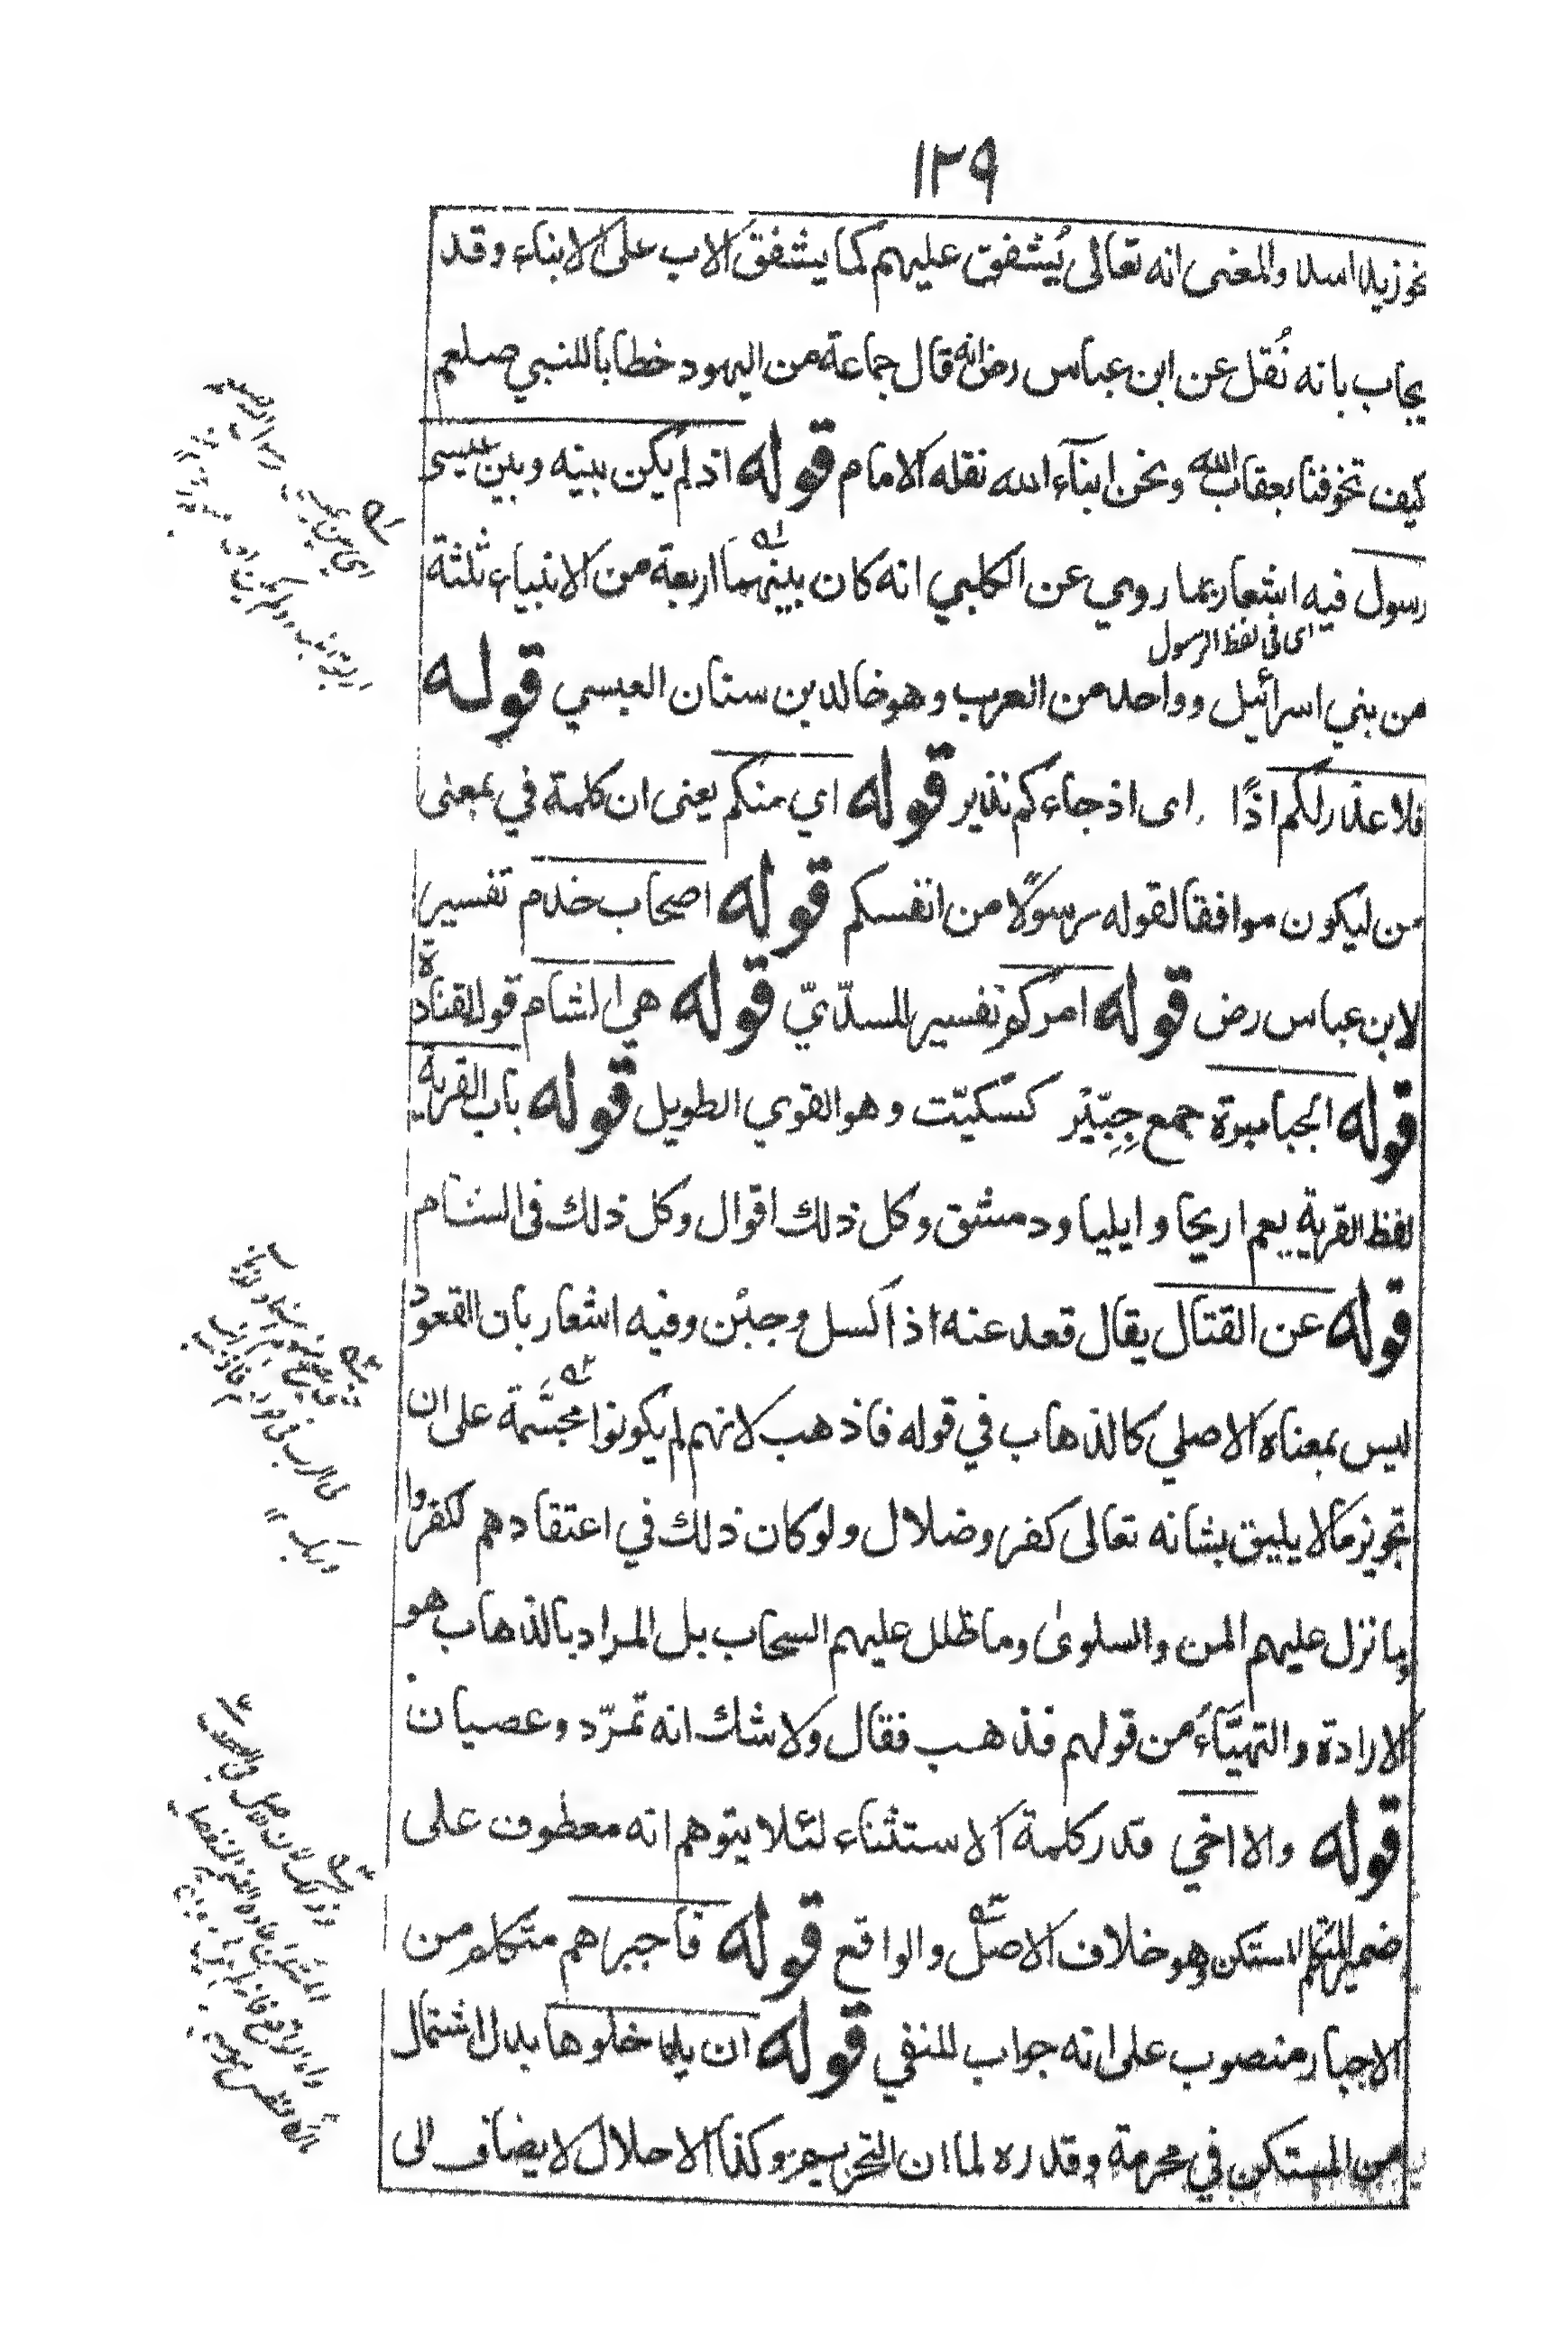 ١٢٩
نحو زيد اسد والمعنى انه تعالى يُشفق عليهم كما يشفق الاب على الابناء وقد
يجاب بانه نُقل عن ابن عباس رض انه قال جماعة من اليهود خطابا للنبي صلعم
كيف تخوفنا بعقاب الله ونحن ابنآء الله نقله الامام قوله اذ لم يكن بينه وبين عيسى
رسول فيه اشعار بما روي عن الكلبي انه كان بينهما اربعة من الانبياء ثلثة
اى فى لفظ الرسول
من بني اسرائيل وواحد من العرب وهو خالد بن سنان العبسي قوله
فلا عذر لكم اذًا اى اذ جاءكم نذير قوله اي منكم يعنى ان كلمة في بمعنى
من ليكون موافقا لقوله رسولًا من انفسكم قوله اصحاب خدم تفسير
لابن عباس رض قوله امركم تفسير للسدّيّ قوله هي الشام قول القتادة
قوله الجبابرة جمع جِبِّيْر كسكيّت وهو القوي الطويل قوله باب القرية
لفظ القرية يعم اريحا وايليا ودمشق وكل ذلك اقوال وكل ذلك فى الشام
قوله عن القتال يقال قعد عنه اذا كسل وجبْن وفيه اشعار بان القعود
ليس بمعناه الاصلي كالذهاب في قوله فاذهب لانهم لم يكونوا مجسَّمة على ان
تجويز ما لا يليق بشانه تعالى كفر وضلال ولو كان ذلك في اعتقادهم لكفروا
وما نزل عليهم المن والسلوىٰ وما ظلل عليهم السحاب بل المراد بالذهاب هو
الارادة والتهيّاءُ من قولهم فذهب فقال ولا شك انه تمرّد وعصيان
قوله والا اخي قدر كلمة الاستثناء لئلا يتوهم انه معطوف على
ضمير المتكلم المستكن وهو خلاف الاصل والواقع قوله فاجبرهم متكلم من
الاجبار منصوب على انه جواب للنفي قوله ان يدخلوها بدل اشتمال
من المستكن في محرمة وقدره لما ان التحريم وكذا الاحلال لا يضاف الى